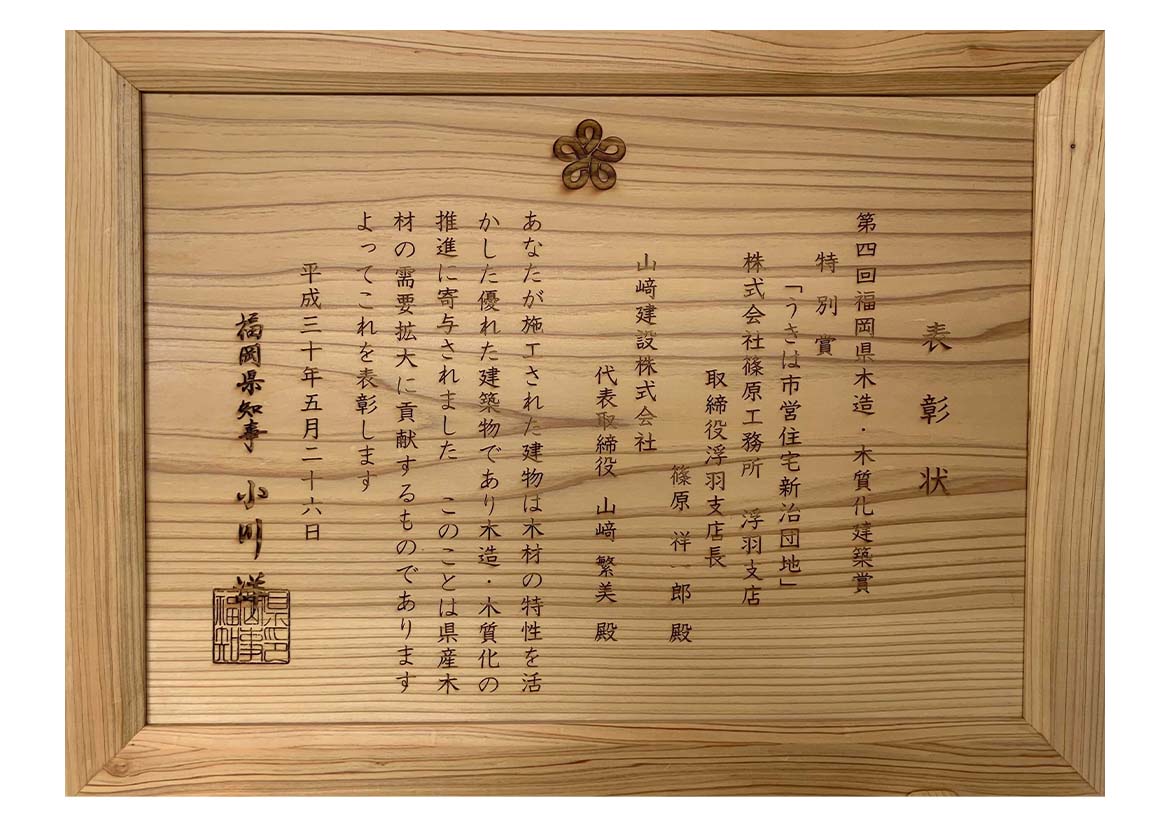 表彰状
第四回福岡県木造・木質化建築賞
特別賞
「うきは市営住宅新治団地」
株式会社篠原工務所 浮羽支店
取締役浮羽支店長
篠原 祥一郎 殿
山﨑建設株式会社
代表取締役 山﨑 繁美 殿
あなたが施工された建物は木材の特性を活
かした優れた建築物であり木造・木質化の
推進に寄与されました このことは県産木
材の需要拡大に貢献するものであります
よってこれを表彰します
平成三十年五月二十六日
福岡県知事 小川 洋